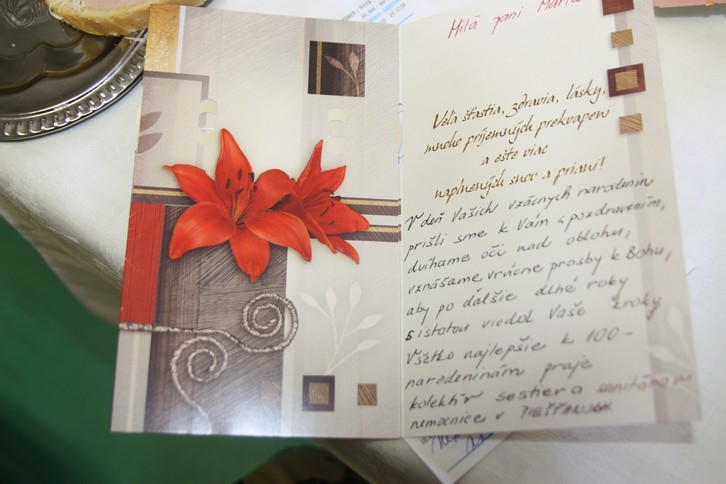 Milá pani Mária
Veľa šťastia, zdravia, lásky,
mnoho príjemných prekvapení
a ešte viac
naplnených snov a prianí!
V deň Vašich vzácnych narodenín
prišli sme k Vám s pozdravením,
dvíhame oči nad oblohu,
vznášame vrúcne prosby k Bohu,
aby po ďalšie dlhé roky
s istotou viedol Vaše kroky
Všetko najlepšie k 100-
narodeninám praje
kolektív sestier a sanitárov
nemocnice v PIEŠŤANOCH